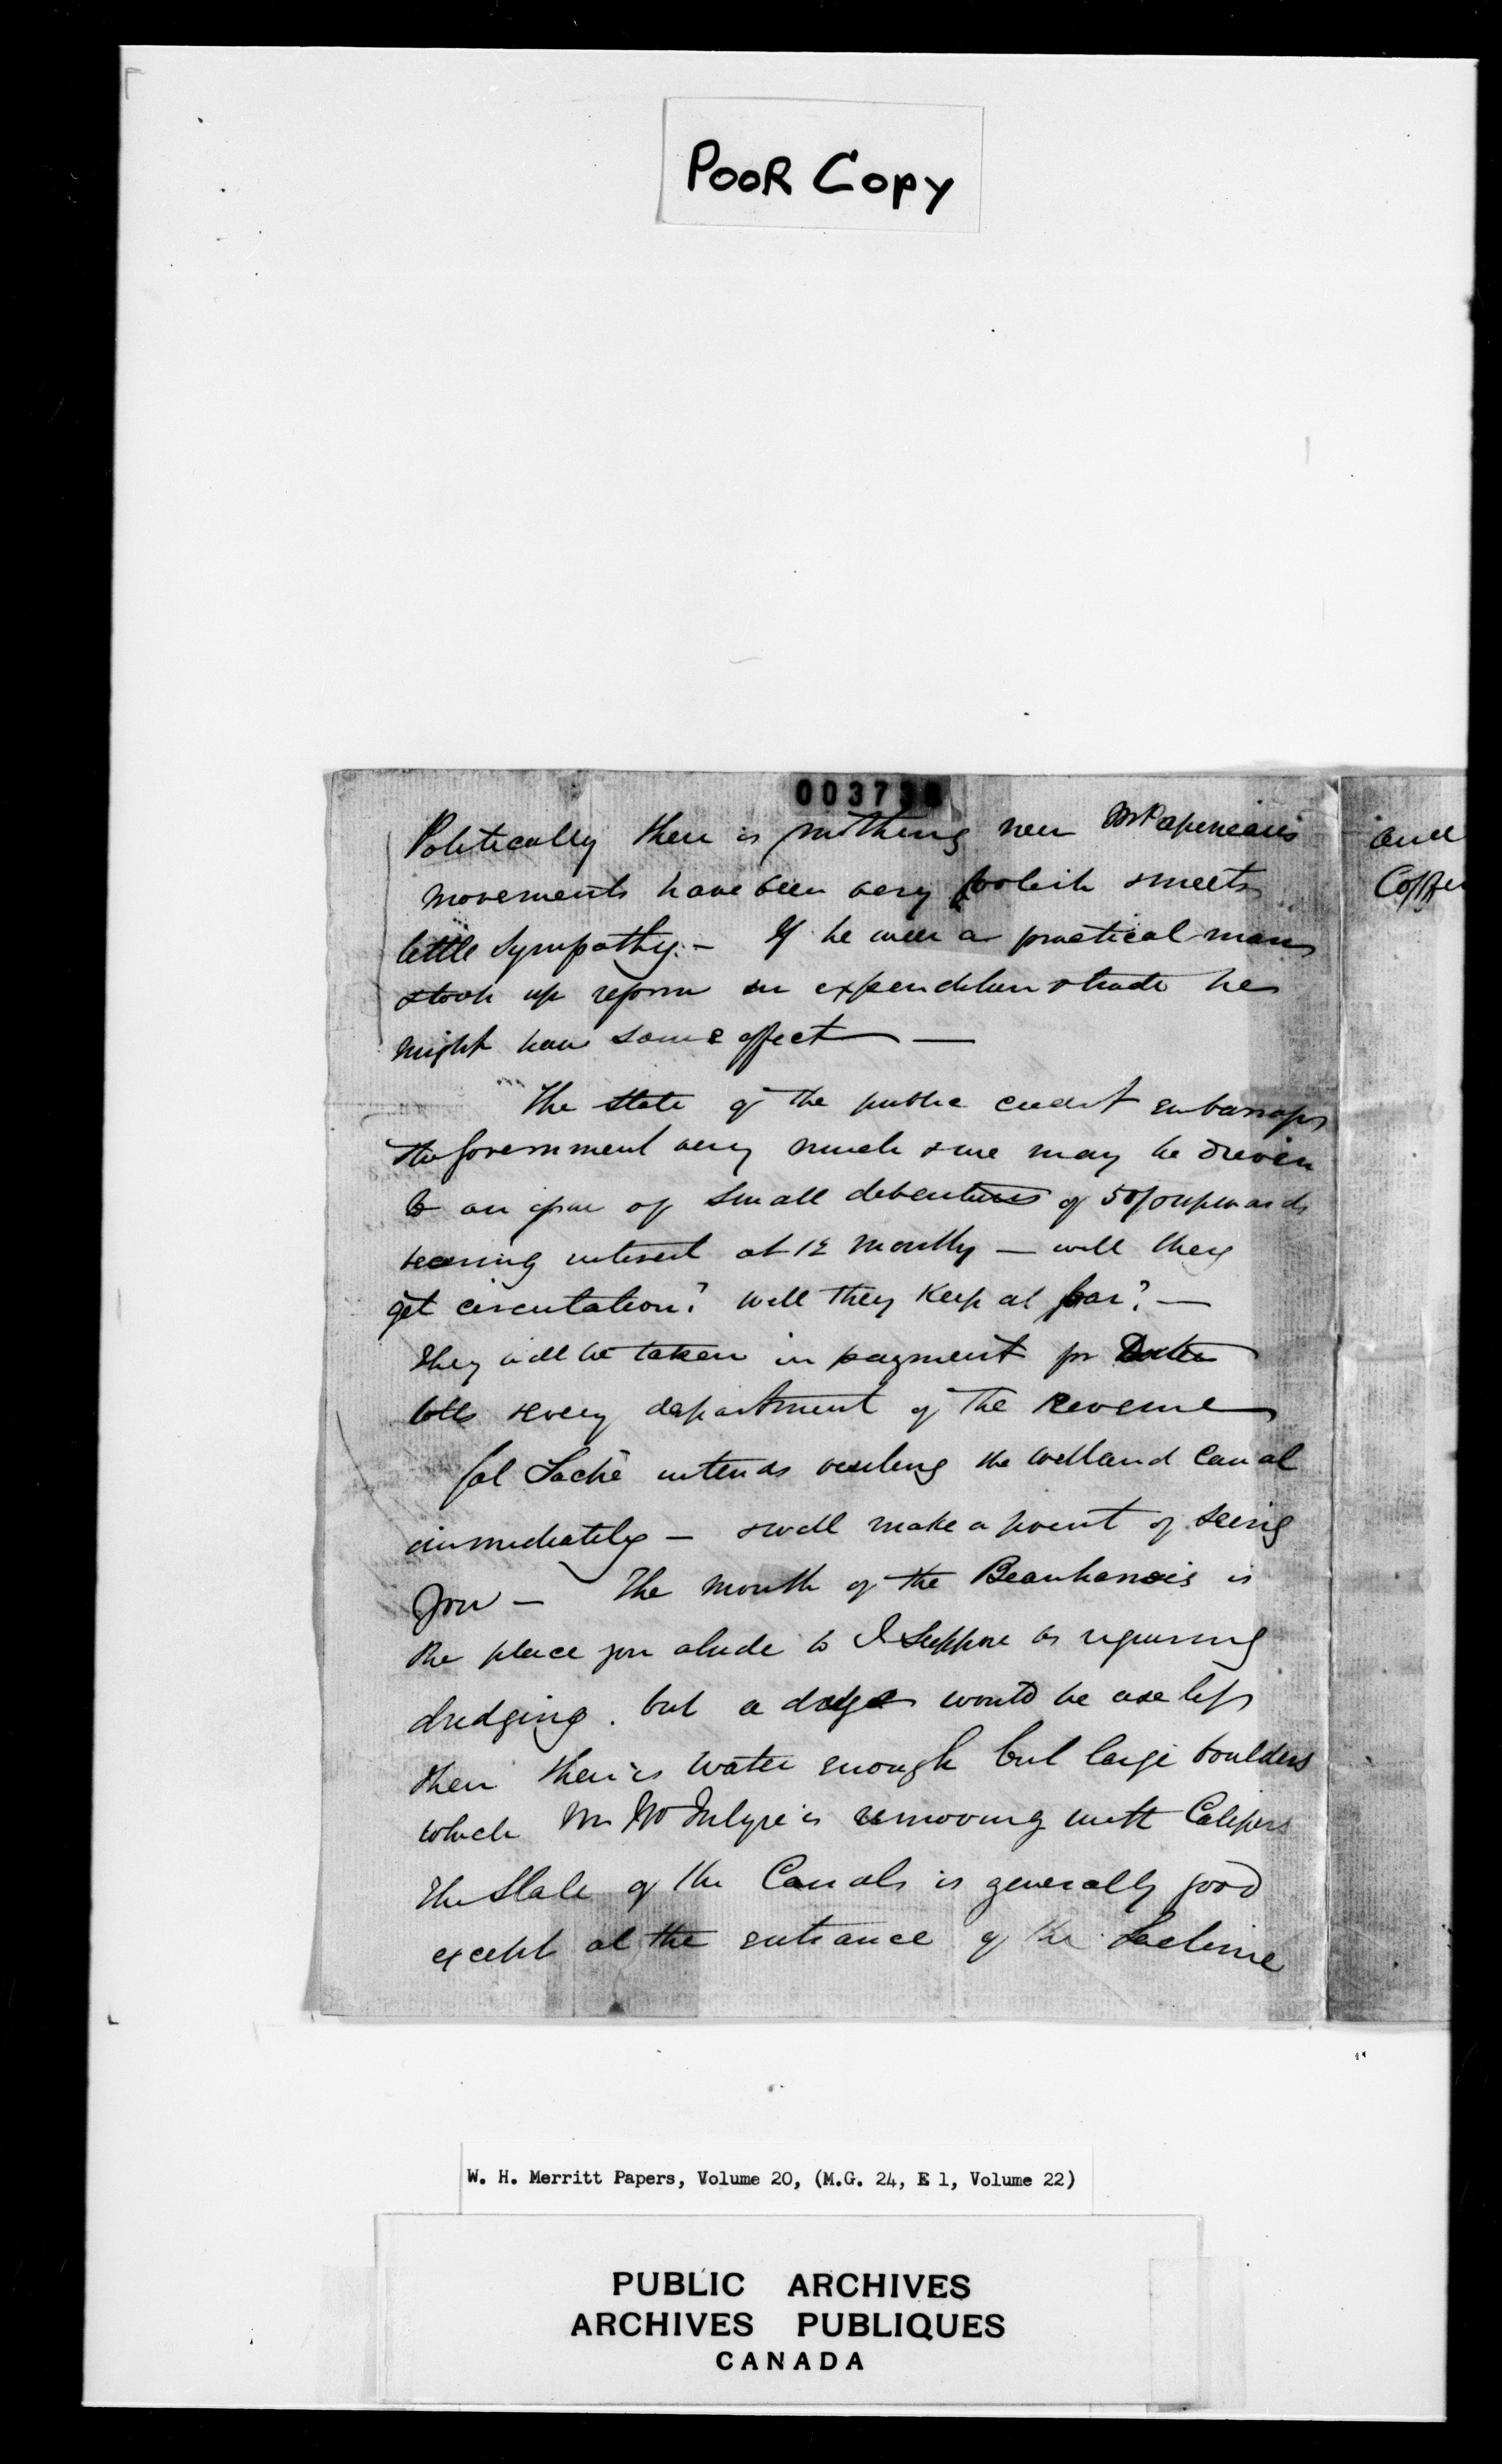 POOR COPY
0037
Politically there is nothing new Mr Papineau's
movements have been very foolish & meets
little sympathy. - If he were a practical man
& took up reform in expenditure & trade he
might have some effect —
The state of the public credit embarrasses
the Government very much & we may be driven
to an issue of small debentures of 50/ & upwards
bearing interest at 12 months — will they
get circulation? will they keep at par? —
They will be taken in payment for Duties
tolls & every department of the Revenue
Col Taché intends visiting the Welland Canal
immediately — & will make a point of seeing
you — The mouth of the Beauharnois is
the place you alude to I suppose as requiring
dredging. but a dredge would be useless
there there is water enough but large boulders
which Mr McIntyre is removing with Calipers
The State of the Canals is generally good
except at the entrance of the Lachine
and
W. H. Merritt Papers, Volume 20, (M.G. 24, E 1, Volume 22)
PUBLIC ARCHIVES
ARCHIVES PUBLIQUES
CANADA